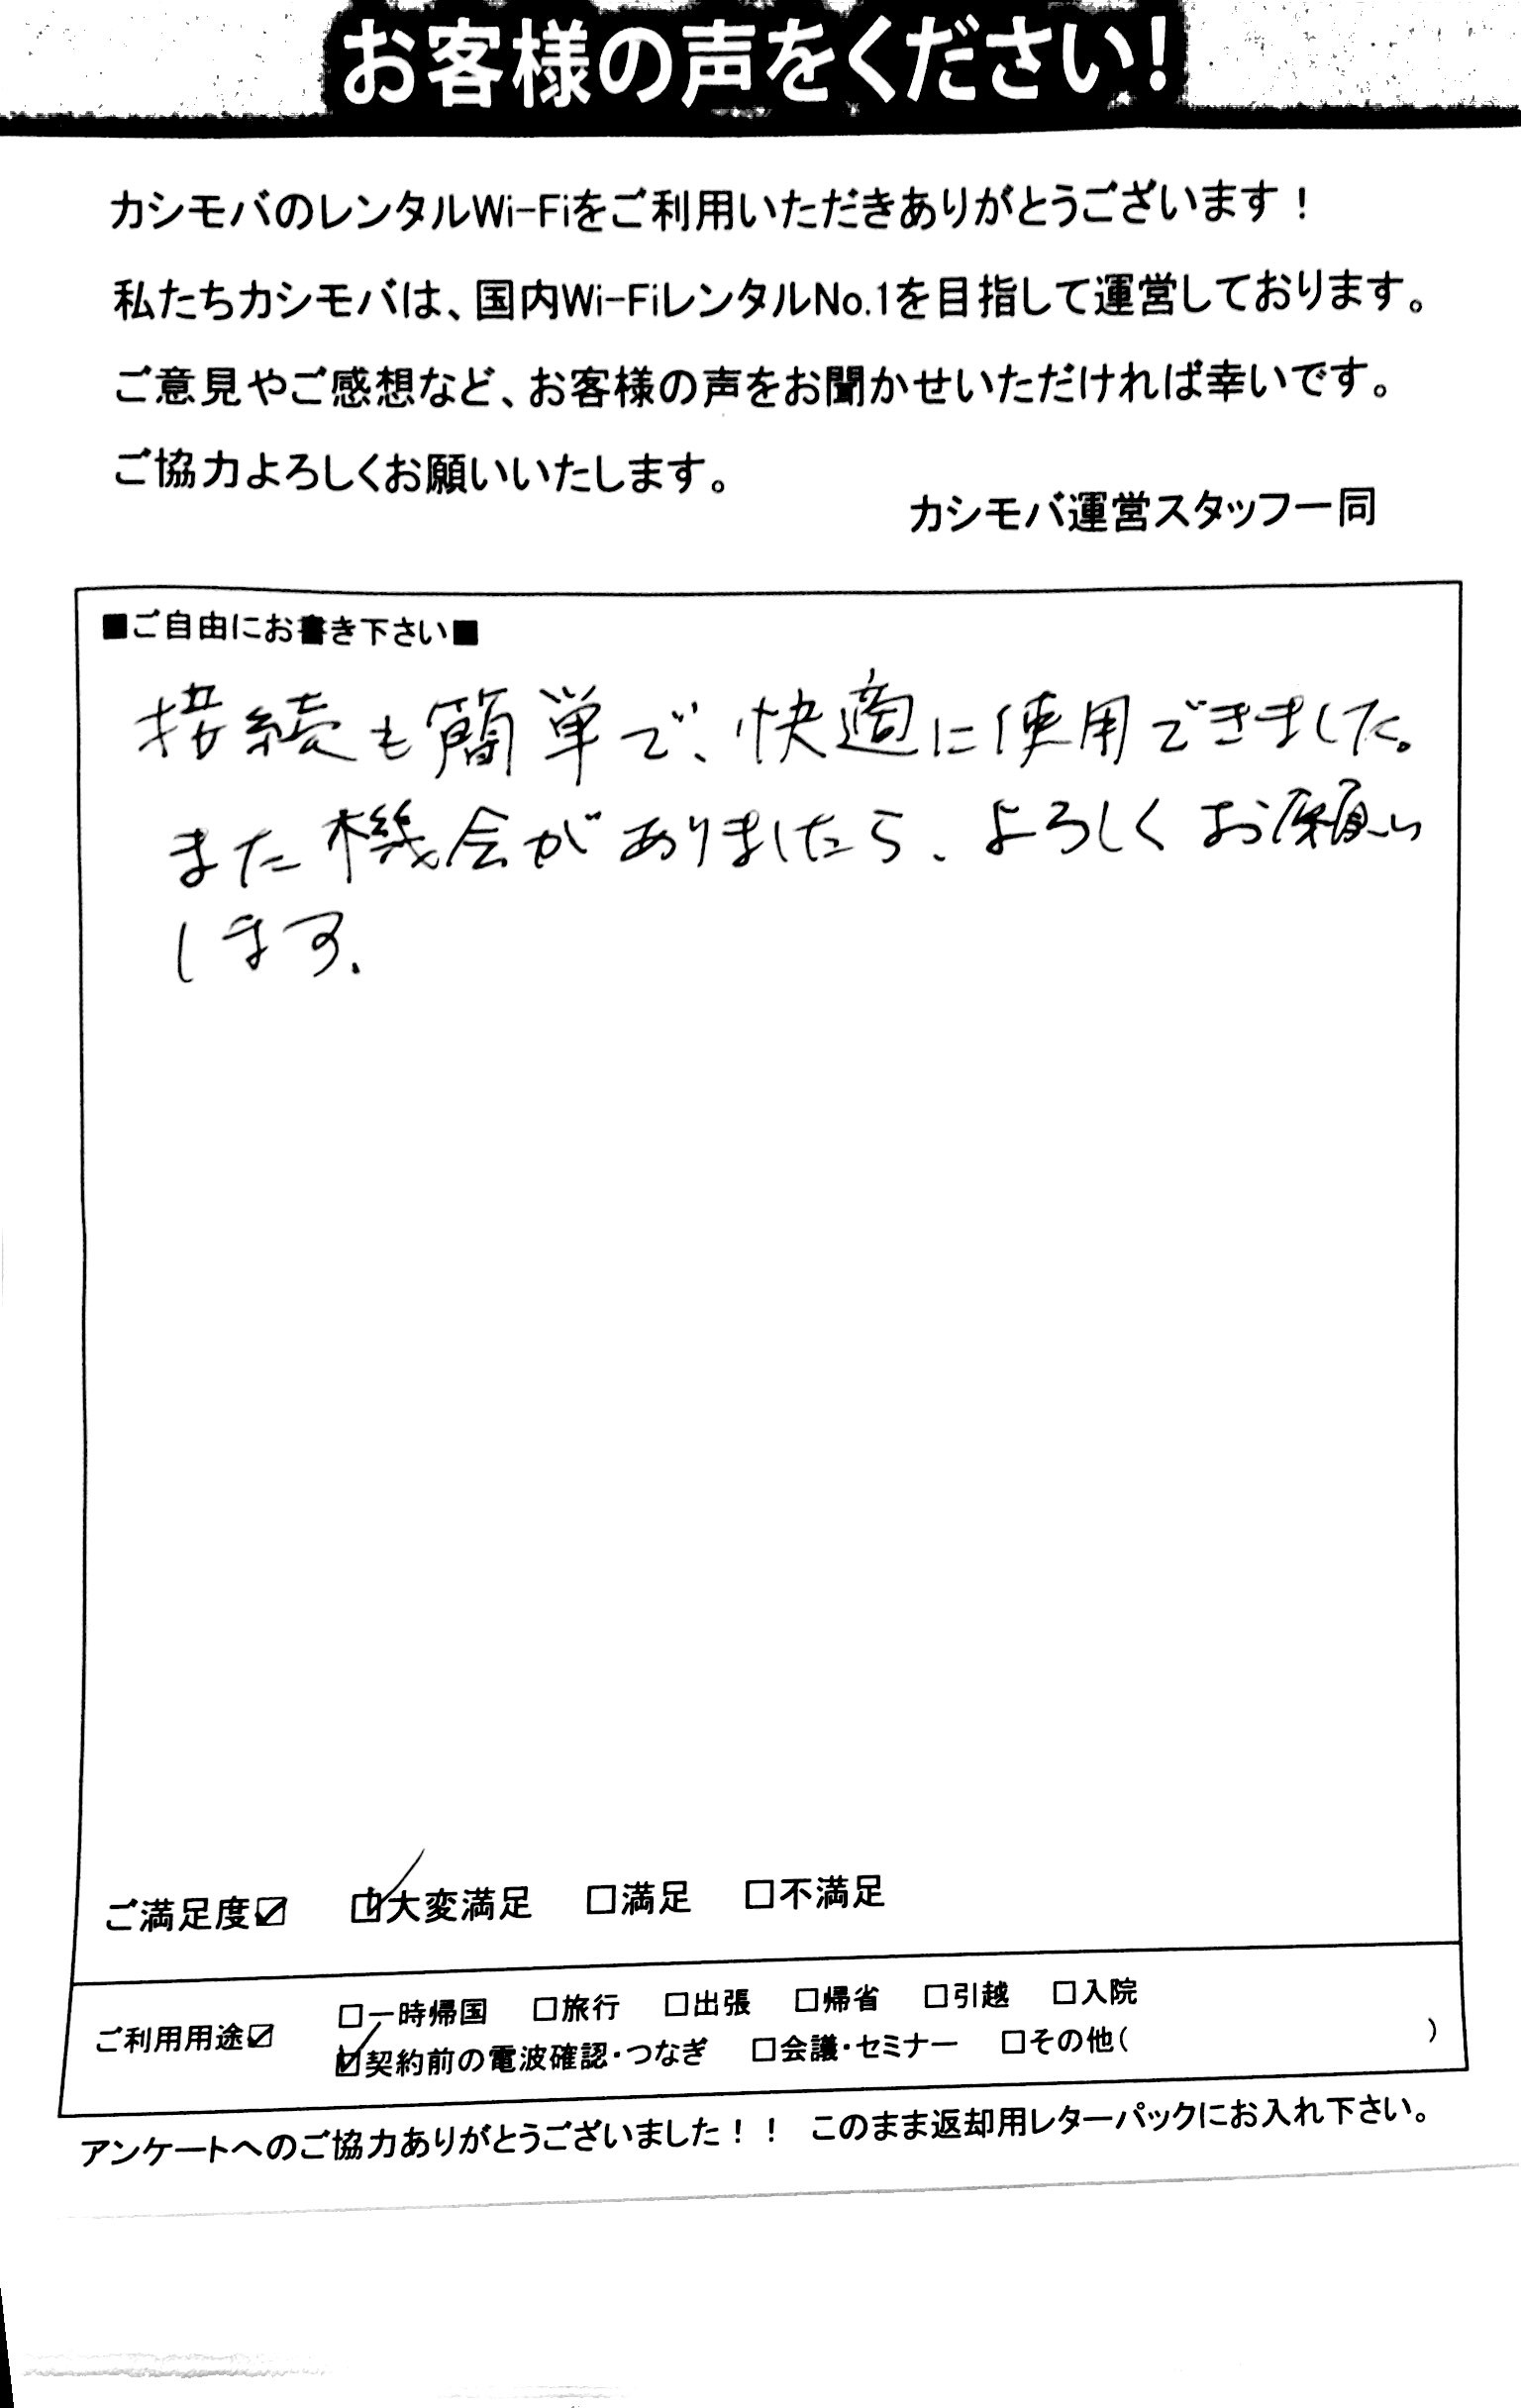 お客様の声をください!
カシモバのレンタルWi-Fiをご利用いただきありがとうございます！
私たちカシモバは、国内Wi-FiレンタルNo.1を目指して運営しております。
ご意見やご感想など、お客様の声をお聞かせいただければ幸いです。
ご協力よろしくお願いいたします。
カシモバ運営スタッフ一同
■ご自由にお書き下さい■
接続も簡単で、快適に使用できました。
また機会がありましたら、よろしくお願い
します。
ご満足度☑ ☑大変満足 □満足 □不満足
□一時帰国 □旅行 □出張 □帰省 □引越 □入院
ご利用用途☑
☑契約前の電波確認・つなぎ □会議・セミナー □その他( )
アンケートへのご協力ありがとうございました！！ このまま返却用レターパックにお入れ下さい。